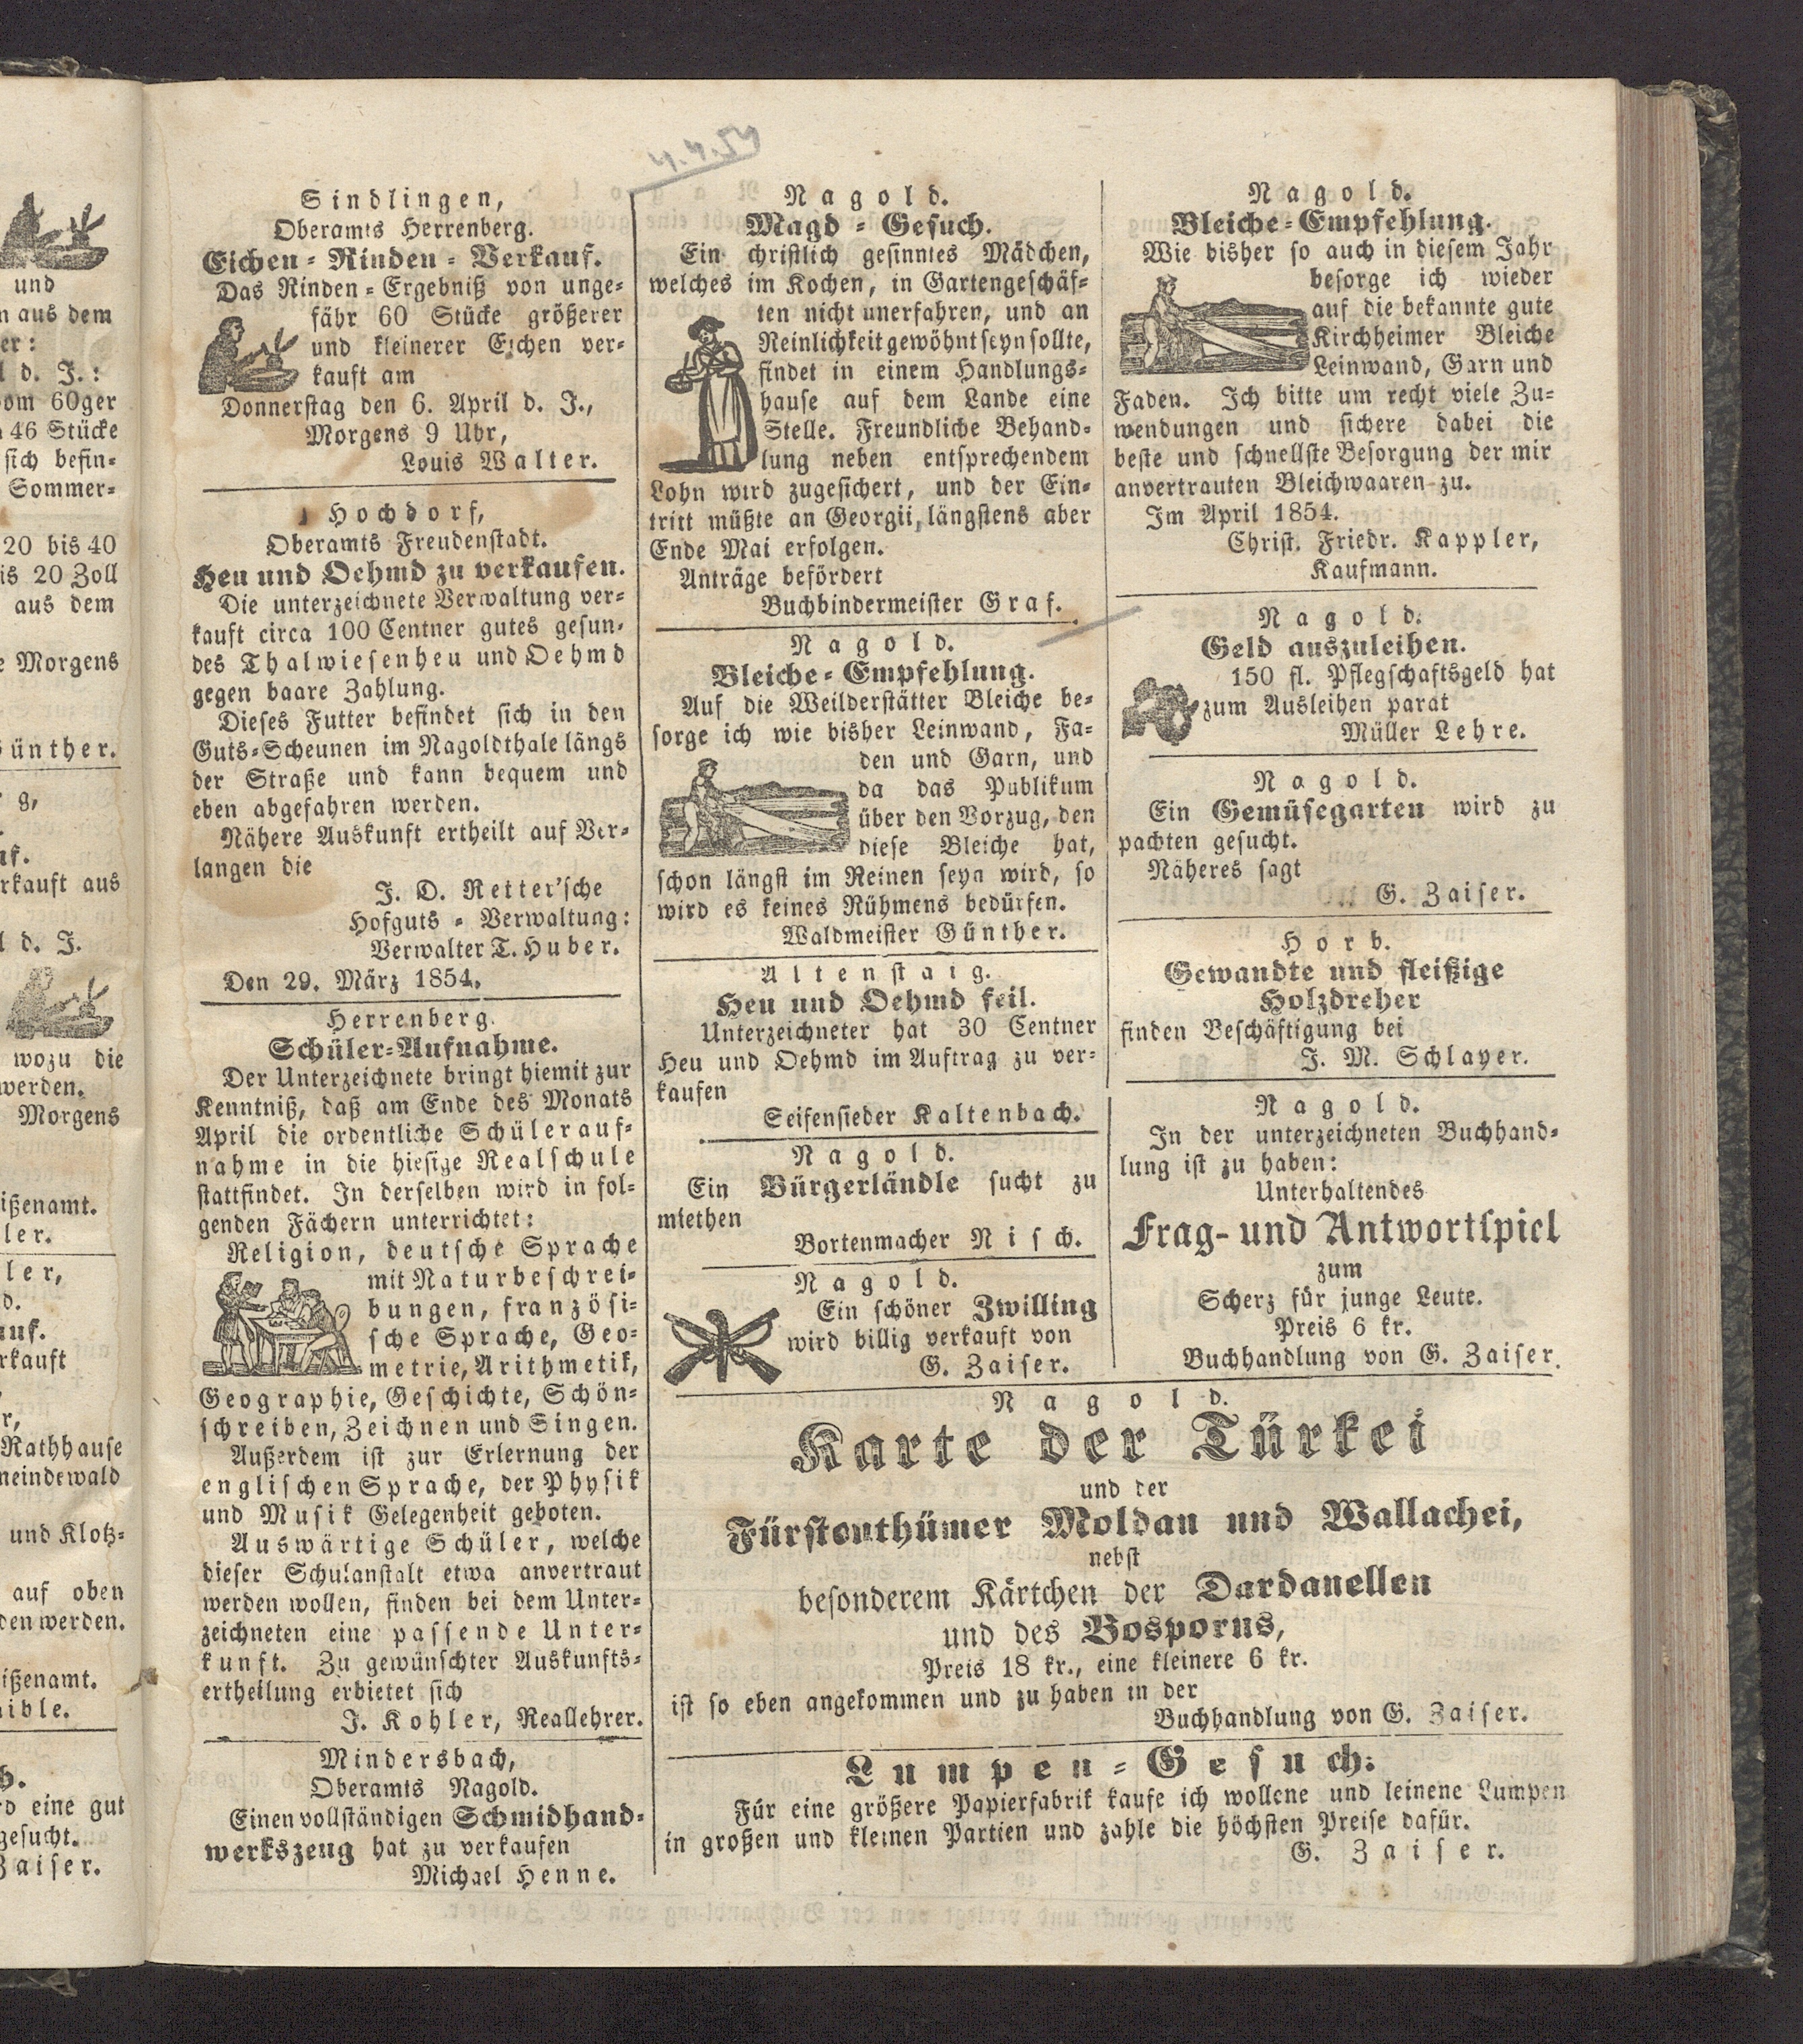 und
n aus dem
er:
l d. J.:
vom 60ger
n 46 Stücke
sich befin-
Sommer-
20 bis 40
is 20 Zoll
aus dem
e Morgens
Günther.
g,
uf.
rkauft aus
l d. J.
wozu die
werden.
Morgens
ißenamt.
ler.
ler,
d.
uf.
rkauft
r,
Rathhause
meindewald
und Klotz-
auf oben
den werden.
ißenamt.
aible.
b.
rd eine gut
gesucht.
Zaiser.
4.4.54
Sindlingen,
Oberamts Herrenberg.
Eichen-Rinden-Verkauf.
Das Rinden-Ergebniß von unge-
fähr 60 Stücke größerer
und kleinerer Eichen ver-
kauft am
Donnerstag den 6. April d. J.,
Morgens 9 Uhr,
Louis Walter.
Hochdorf,
Oberamts Freudenstadt.
Heu und Oehmd zu verkaufen.
Die unterzeichnete Verwaltung ver-
kauft circa 100 Centner gutes gesun-
des Thalwiesenheu und Oehmd
gegen baare Zahlung.
Dieses Futter befindet sich in den
Guts-Scheunen im Nagoldthale längs
der Straße und kann bequem und
eben abgefahren werden.
Nähere Auskunft ertheilt auf Ver-
langen die
J. O. Retter'sche
Hofguts-Verwaltung:
Verwalter T. Huber.
Den 29. März 1854.
Herrenberg.
Schüler-Aufnahme.
Der Unterzeichnete bringt hiemit zur
Kenntniß, daß am Ende des Monats
April die ordentliche Schülerauf-
nahme in die hiesige Realschule
stattfindet. In derselben wird in fol-
genden Fächern unterrichtet:
Religion, deutsche Sprache
mit Naturbeschrei-
bungen, französi-
sche Sprache, Geo-
metrie, Arithmetik,
Geographie, Geschichte, Schön-
schreiben, Zeichnen und Singen.
Außerdem ist zur Erlernung der
englischen Sprache, der Physik
und Musik Gelegenheit geboten.
Auswärtige Schüler, welche
dieser Schulanstalt etwa anvertraut
werden wollen, finden bei dem Unter-
zeichneten eine passende Unter-
kunft. Zu gewünschter Auskunfts-
ertheilung erbietet sich
J. Kohler, Reallehrer.
Mindersbach,
Oberamts Nagold.
Einen vollständigen Schmidhand-
werkszeug hat zu verkaufen
Michael Henne.
Nagold.
Magd-Gesuch.
Ein christlich gesinntes Mädchen,
welches im Kochen, in Gartengeschäf-
ten nicht unerfahren, und an
Reinlichkeit gewöhnt seyn sollte,
findet in einem Handlungs-
hause auf dem Lande eine
Stelle. Freundliche Behand-
lung neben entsprechendem
Lohn wird zugesichert, und der Ein-
tritt müßte an Georgii, längstens aber
Ende Mai erfolgen.
Anträge befördert
Buchbindermeister Graf.
Nagold.
Bleiche-Empfehlung.
Auf die Weilderstätter Bleiche be-
sorge ich wie bisher Leinwand, Fa-
den und Garn, und
da das Publikum
über den Vorzug, den
diese Bleiche hat,
schon längst im Reinen seyn wird, so
wird es keines Rühmens bedürfen.
Waldmeister Günther.
Altenstaig.
Heu und Oehmd feil.
Unterzeichneter hat 30 Centner
Heu und Oehmd im Auftrag zu ver-
kaufen
Seifensieder Kaltenbach.
Nagold.
Ein Bürgerländle sucht zu
miethen
Bortenmacher Nisch.
Nagold.
Ein schöner Zwilling
wird billig verkauft von
G. Zaiser.
Nagold.
Bleiche-Empfehlung.
Wie bisher so auch in diesem Jahr
besorge ich wieder
auf die bekannte gute
Kirchheimer Bleiche
Leinwand, Garn und
Faden. Ich bitte um recht viele Zu-
wendungen und sichere dabei die
beste und schnellste Besorgung der mir
anvertrauten Bleichwaaren zu.
Im April 1854.
Christ. Friedr. Kappler,
Kaufmann.
Nagold.
Geld auszuleihen.
150 fl. Pflegschaftsgeld hat
zum Ausleihen parat
Müller Lehre.
Nagold.
Ein Gemüsegarten wird zu
pachten gesucht.
Näheres sagt
G. Zaiser.
Horb.
Gewandte und fleißige
Holzdreher
finden Beschäftigung bei
J. M. Schlayer.
Nagold.
In der unterzeichneten Buchhand-
lung ist zu haben:
Unterhaltendes
Frag- und Antwortspiel
zum
Scherz für junge Leute.
Preis 6 kr.
Buchhandlung von G. Zaiser.
Nagold.
Karte der Türkei
und der
Fürstenthümer Moldau und Wallachei,
nebst
besonderem Kärtchen der Dardanellen
und des Bosporus,
Preis 18 kr., eine kleinere 6 kr.
ist so eben angekommen und zu haben in der
Buchhandlung von G. Zaiser.
Lumpen-Gesuch:
Für eine größere Papierfabrik kaufe ich wollene und leinene Lumpen
in großen und kleinen Partien und zahle die höchsten Preise dafür.
G. Zaiser.